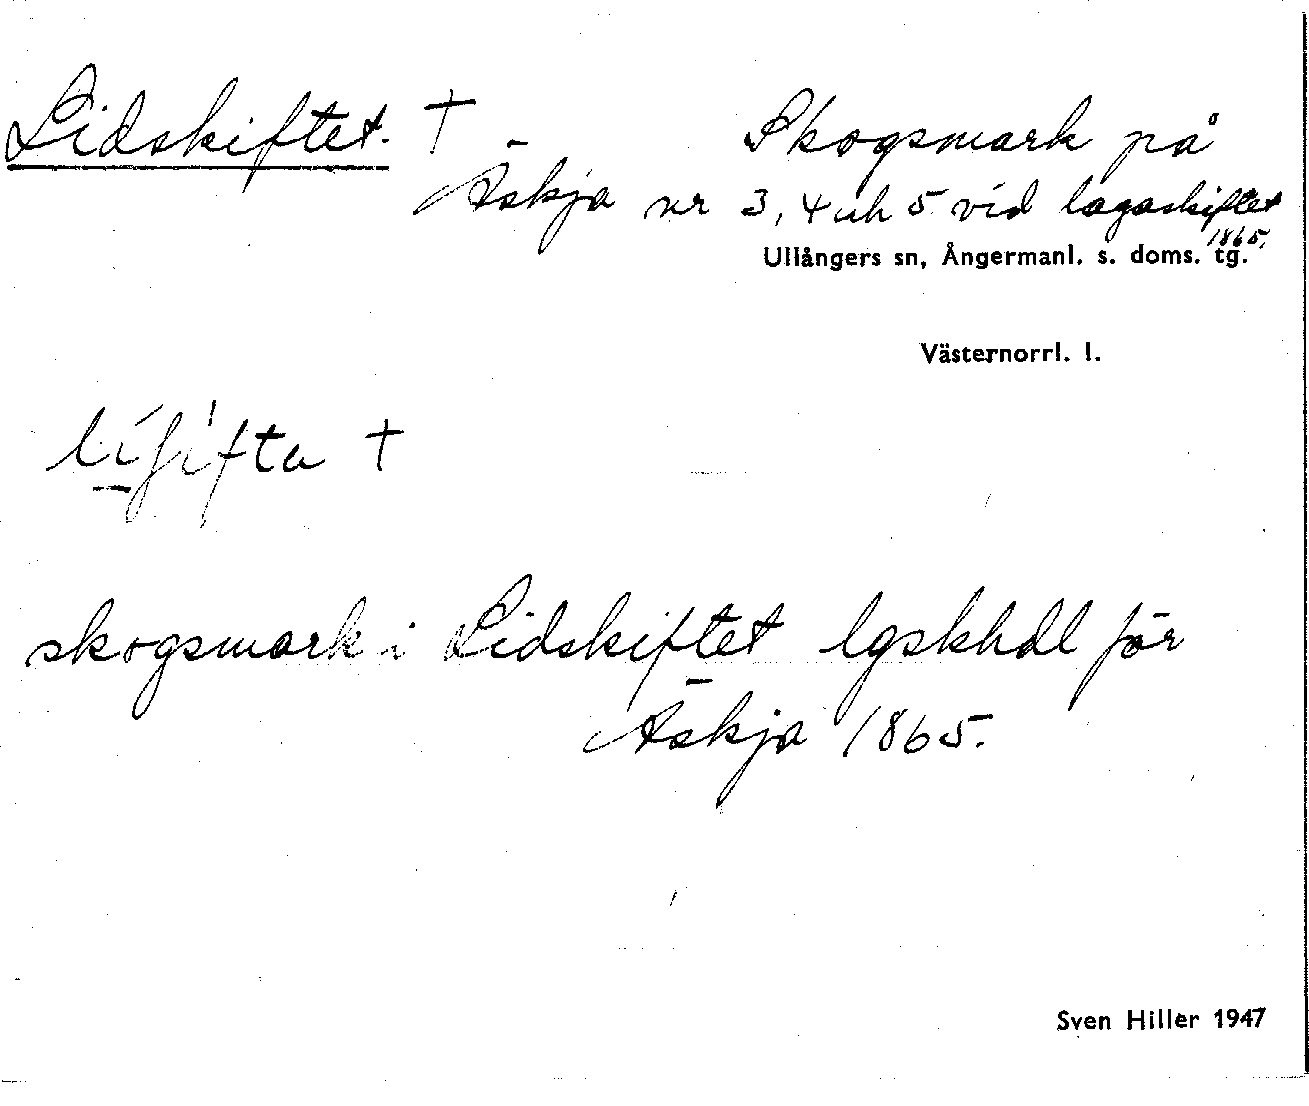 Lidskiftet. † Skogsmark på
Äskja nr 3, 4 och 5 vid lagaskiftet
1865.
Ullångers sn, Ångermanl. s. doms. tg.
Västernorrl. l.
†
skogsmark i Lidskiftet lgskhdl för
Äskja 1865.
Sven Hiller 1947